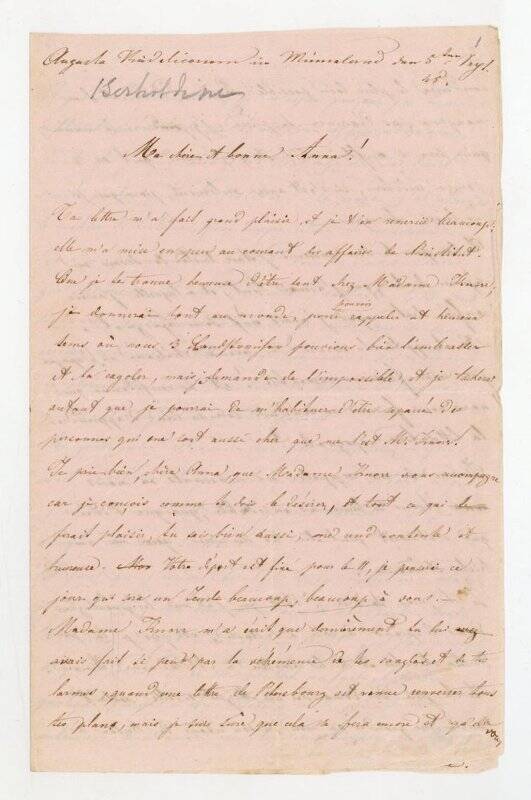 Augusta Vindelicorum in Münceland den 5ten Sept.
48.
Bertholdine
1
Ma chère et bonne Anna!
Ta lettre m'a fait grand plaisir et je t'en remercie beaucoup,
elle m'a mise un peu au courant des affaires de
Que je te trouve heureuse d'être tant chez Madame Knorr,
je donnerai tout au monde, pour pouvoir rappeler cet heureux
tems où nous 3 pouvions bien l'embrasser
et la cajoler, mais je demande de l'impossible et je tacherai
autant que je pourrai de m'habituer d'être separée des
personnes qui me sont aussi cher que ne l'est Me Knorr.
Je prie bien, chère Anna que Madame Knorr vous acompagne
car je conçois comme tu dois le desirer, et tout ce qui te
ferait plaisir, tu sais bien aussi, me rend contente et
heureuse. Votre départ est fixé pour le 11, je penserai ce
jour qui sera un Jeudi beaucoup, beaucoup à vous.
Madame Knorr m'a écrit que dernièrement tu lui
avais fait si peur par la véhémence de tes sanglots et de tes
larmes, quand une lettre de Petersbourg est venue renverser tous
tes plans, mais je suis sûre que cela se fera encore et